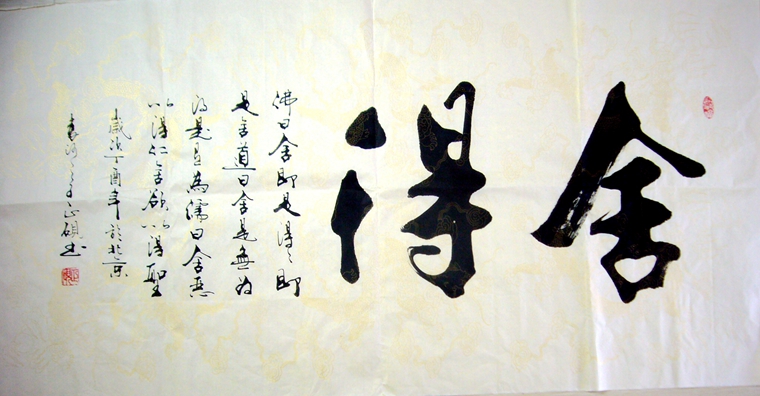 舍得
佛曰舍即是得々即
是舍道曰舍是無为
得是有為儒曰舍惡
以得仁舍欲以得聖
歲次丁酉年於北京
正碩书